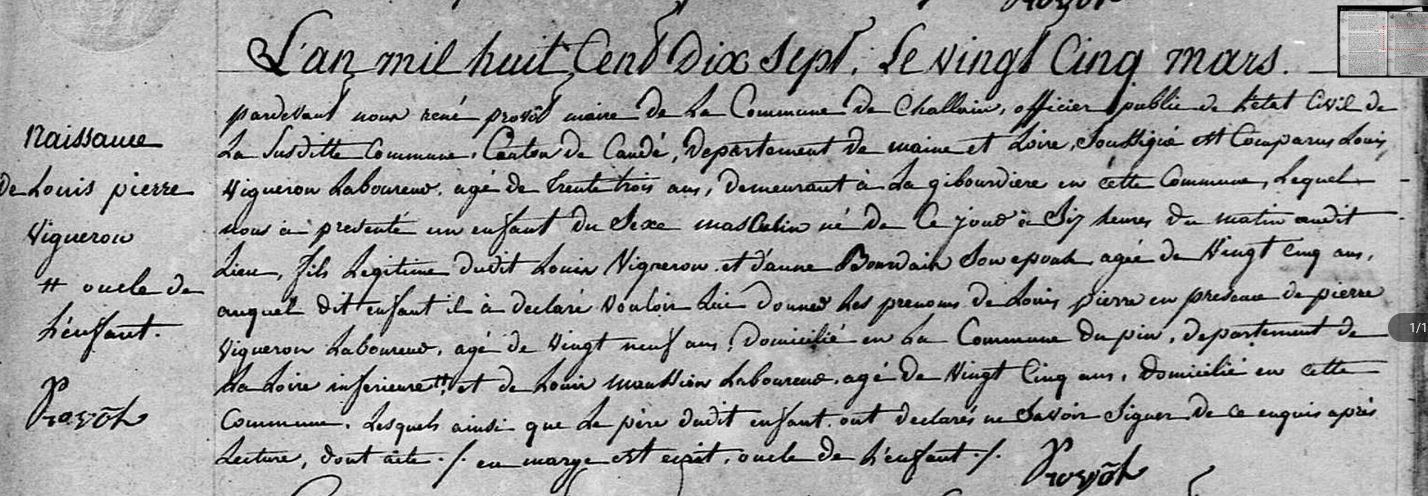 L'an mil huit Cent Dix Sept, Le vingt Cinq mars.
pardevant nous rené provost maire de La Commune de Challain, officier public de l'état Civil de
La Susditte Commune, Canton de Candé, Departement de maine et Loire, Soussigné est Comparus Louis
Vigneron Laboureur, agé de trente trois ans, Demeurant à La gibourdiere en cette Commune, Lequel
nous à presenté un enfant du Sexe masculin né de Ce jour à Six heures du matin audit
Lieu, fils Legitime dudit Louis Vigneron et d'anne Son epouse agée de Vingt Cinq ans,
auquel dit enfant il à declaré Vouloir Lui donner Les prenoms de Louis pierre en presence de pierre
Vigneron Laboureur, agé de Vingt neuf ans, Domicilié en La Commune du pin, departement de
La Loire inferieure # et de Louis Laboureur, agé de Vingt Cinq ans, Domicilié en cette
Commune, Lesquels ainsi que Le père dudit enfant ont declarés ne Savoir Signer de ce enquis après
Lecture, dont acte ./. en marge est ecrit, oncle de L'enfant ./.
Provost
Naissance
de Louis pierre
Vigneron
# oncle de
L'enfant.
Provost
1/1